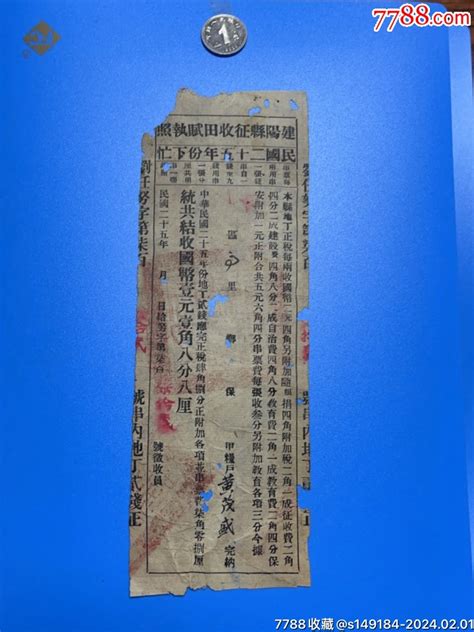 7788.com
中国收藏热线
建陽縣征收田賦執照
民國二十五年份下忙
本縣地丁正稅每兩收國幣二元四角另附加隨糧捐四角附加稅二角一成征收費二角
四分二成建設費四角八分二成自治費四角八分教育費二角一成教育費二角四分保
安附加一元正附合共五元六角四分串票費每張收叁分另附加教育各項三分今據
區 里 鄉 保 甲糧戶黃茂盛完納
中華民國二十五年份地丁貳錢應完正稅肆角捌分正附加各項並串票費柒角零捌厘
統共結收國幣壹元壹角八分八厘
民國二十五年 月 日給努字第 號徵收員
號串內地丁貳錢正
7788收藏@s149184-2024.02.01